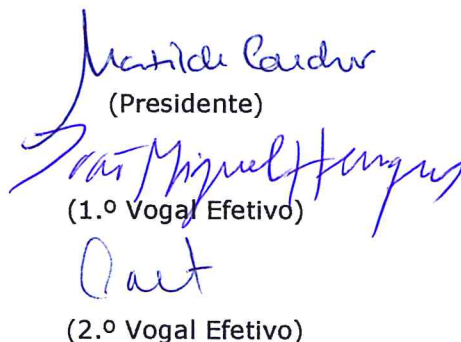 Matilde
(Presidente)
João Miguel Henriques
(1.º Vogal Efetivo)
(2.º Vogal Efetivo)